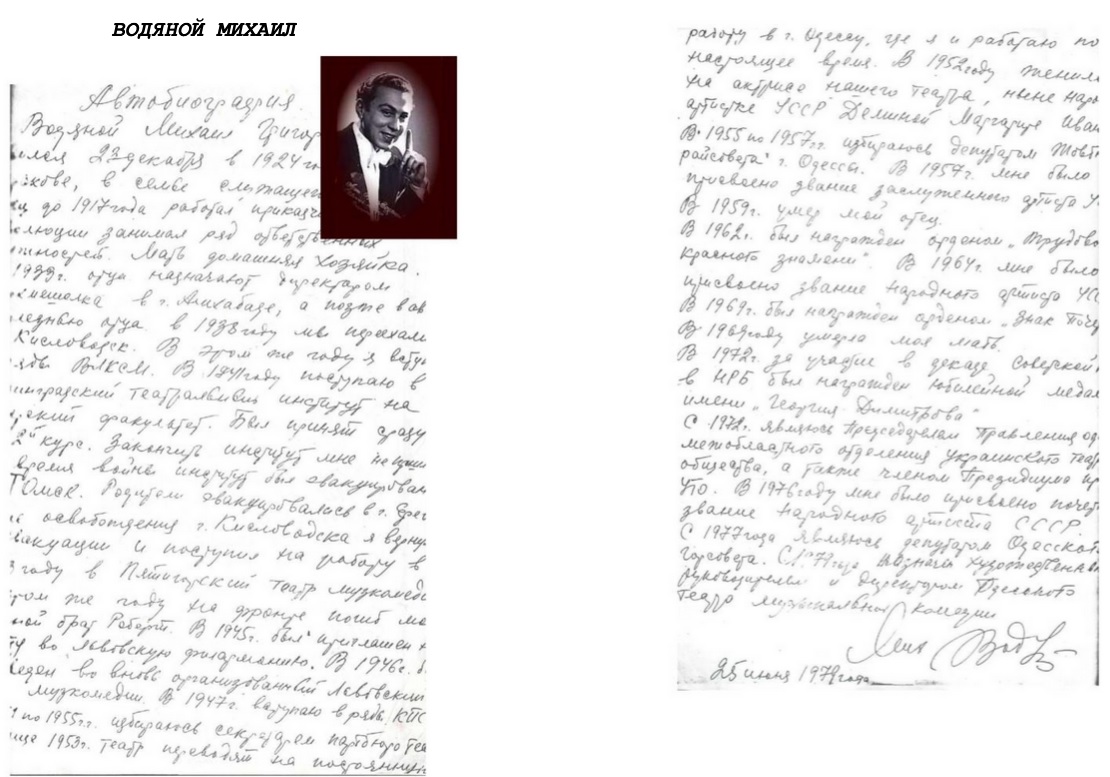 ВОДЯНОЙ МИХАИЛ
Автобиография.
Водяной Михаил Григор
23 декабря в 1924
в семье служащего
до 1917 года работал приказч
люции занимал ряд ответственных
Мать домашняя хозяйка.
1933г. отца назначают директором
в г. Ашхабаде, а позже в
отца. в 1938 году мы переехали
Кисловодск. В этом же году я вступ
ряды ВЛКСМ. В 1941 году поступаю в
нинградский театральный институт на
факультет. Был принят сразу
2й курс. Закончить институт мне не
время войны институт был эвакуирован
Томск. Родители эвакуировались в г.
освобождения г. Кисловодска я верну
вакуации и поступил на работу в
3 году в Пятигорский театр музкомеди
том же году на фронте погиб мо
ной брат Роберт. В 1945г. был приглашен
ту во Львовскую филармонию. В 1946г.
веден во вновь организованный Львовский
музкомедии. В 1947г. вступаю в ряды КПС
по 1955г.г. избираюсь секретарем партбюро теа
1953г. театр переводят на постоянную
работу в г. Одессу, где я и работаю по
настоящее время. В 1952 году женил
на актрисе нашего театра, ныне нар
артистке УССР Деминой Маргарите Иван
В 1955 по 1957г.г. избираюсь депутатом Жовтн
райсовета г. Одессы. В 1957г. мне было
присвоено звание заслуженного артиста У
В 1959г. умер мой отец.
В 1962г. был награжден орденом „Трудово
красного знамени". В 1964г. мне было
присвоено звание народного артиста УСС
В 1969г. был награжден орденом „Знак Поче
В 1969 году умерла моя мать.
В 1972г. за участие в декаде Советской
в НРБ был награжден юбилейной медал
имени „Георгия Димитрова"
С являюсь Председателем Правления од
межобластного отделения украинского теат
общества, а также членом Президиума пр
УТО. В 1976 году мне было присвоено почет
звание народного артиста СССР.
С 1977 года являюсь депутатом Одесског
горсовета. С назначен художественным
руководителем и директором Одесского
театра музыкальной комедии
25 июня 1979 года